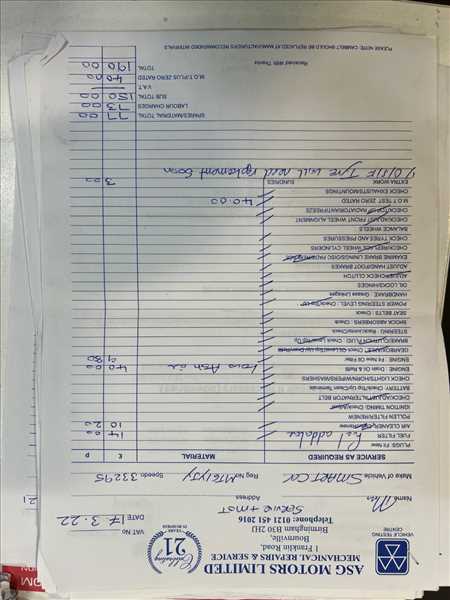 ASG MOTORS LIMITED
MECHANICAL REPAIRS & SERVICE
1 Franklin Road,
Bournville,
Birmingham B30 2HJ
Telephone: 0121 451 2016
VEHICLE TESTING
CENTRE
Celebrating
21
YEARS
IN BUSINESS
VAT NO
DATE 17.3.22
Service + mot
Name
Address
Make of Vehicle SMART CAR Reg No MT61XTY Speedo: 33295
SERVICE AS REQUIRED MATERIAL £ P
PLUGS: Fit New
FUEL FILTER Fuel additive 14 00
AIR CLEANER: 10 20
POLLEN FILTER/RENEW
IGNITION TIMING: Check/Adjust
CHECK/ADJUST ALTERNATOR BELT
BATTERY: Check/Top Up/Clean Terminals
CHECK LIGHTS/HORN/WIPERS/WASHERS
ENGINE: Drain Oil & Refil Low Ash oil 40 00
ENGINE: Fit New Oil Filter 9 80
GEARBOX: Check Level/Top Up
BRAKE/CLUTCH FLUID: Check Level/Top Up
STEERING: Rack/Joints/Check
SHOCK ABSORBERS: Check
SEAT BELTS: Check
POWER STEERING LEVEL: Check/Top Up
HANDBRAKE: Grease Linkages
OIL LOCKS/HINGES
ADJUST/CHECK CLUTCH
ADJUST FOOT/HAND BRAKES
EXAMINE BRAKE LININGS/DISC PADS
CHECK/REPLEN WHEEL CYLINDERS
CHECK TYRES AND PRESSURES
BALANCE WHEELS
CHECK/ADJUST FRONT WHEEL ALIGNMENT
CHECK/TOP UP RADIATOR/ANTIFREEZE
M.O.T TEST ZERO RATED 40.00
CHECK EXHAUSTS/MOUNTINGS
EXTRA WORK SUNDRIES 3 00
O/S/F Tyre will need replacement soon
SPARES/MATERIAL TOTAL 77 00
LABOUR CHARGES 73 00
SUB TOTAL 150 00
V.A.T
M.O.T PLUS ZERO RATED 40 00
TOTAL 190 00
Received With Thanks
PLEASE NOTE: CAMBELT SHOULD BE REPLACED AT MANUFACTURER'S RECOMMENDED INTERVALS